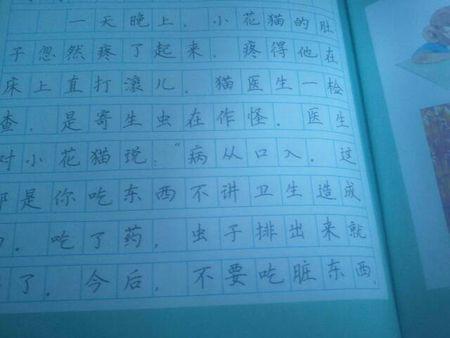 一天晚上，小花猫的肚
子忽然疼了起来，疼得他在
床上直打滚儿，猫医生一检
查，是寄生虫在作怪。医生
对小花猫说："病从口入，这
都是你吃东西不讲卫生造成
的。吃了药，虫子排出来就
了。今后，不要吃脏东西，